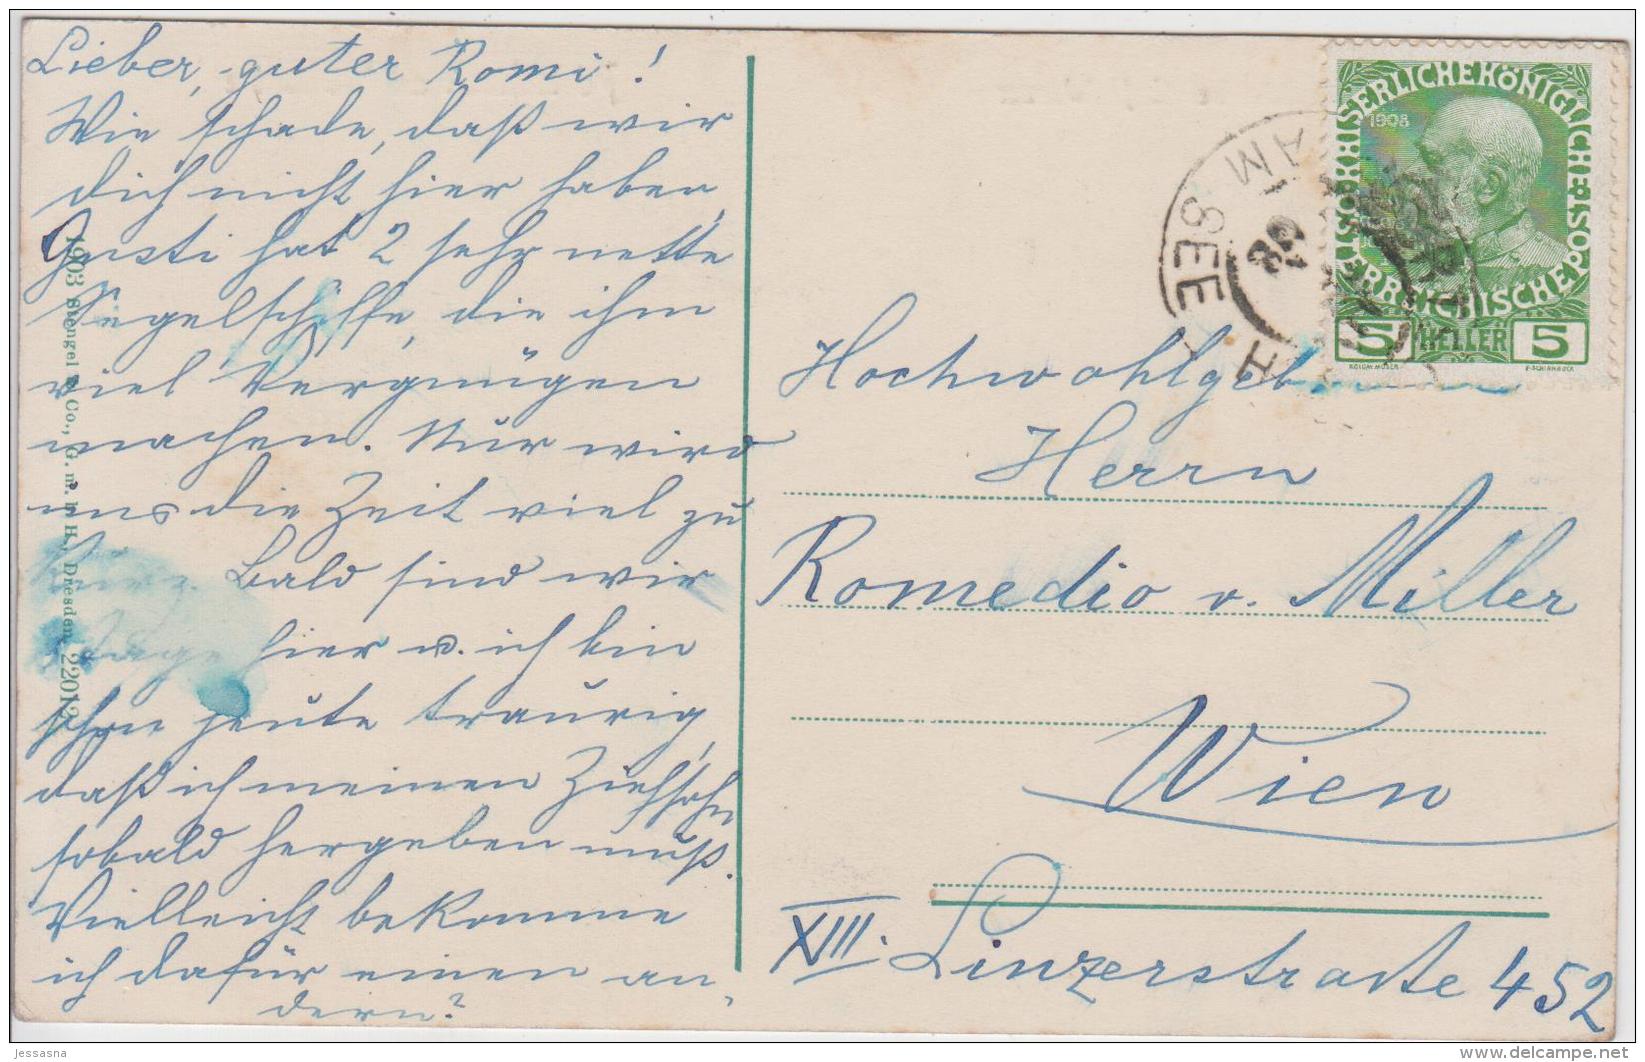 Lieber, guter Romi!
Wie schade, daß wir
dich nicht hier haben,
Gusti hat 2 sehr nette
Segelschiffe, die ihm
viel Vergnügen
machen. Nur wird
uns die Zeit viel zu
kurz. Bald sind wir
Tage hier u. ich bin
schon heute traurig,
daß ich meinen Ziehsohn
sobald hergeben muß.
Vielleicht bekomme
ich dafür einen an-
dern?
1903 Stengel & Co., G. m. b. H., Dresden 22012
KAISERLICHE KÖNIGLICHE ÖSTERREICHISCHE POST
1908
5 HELLER 5
KOLOM. MOSER
F. SCHIRNBÖCK
AM SEE
Hochwohlgeb.
Herrn
Romedio v. Miller
Wien
XIII. Linzerstraße 452
jessasna
http://www.delcampe.net